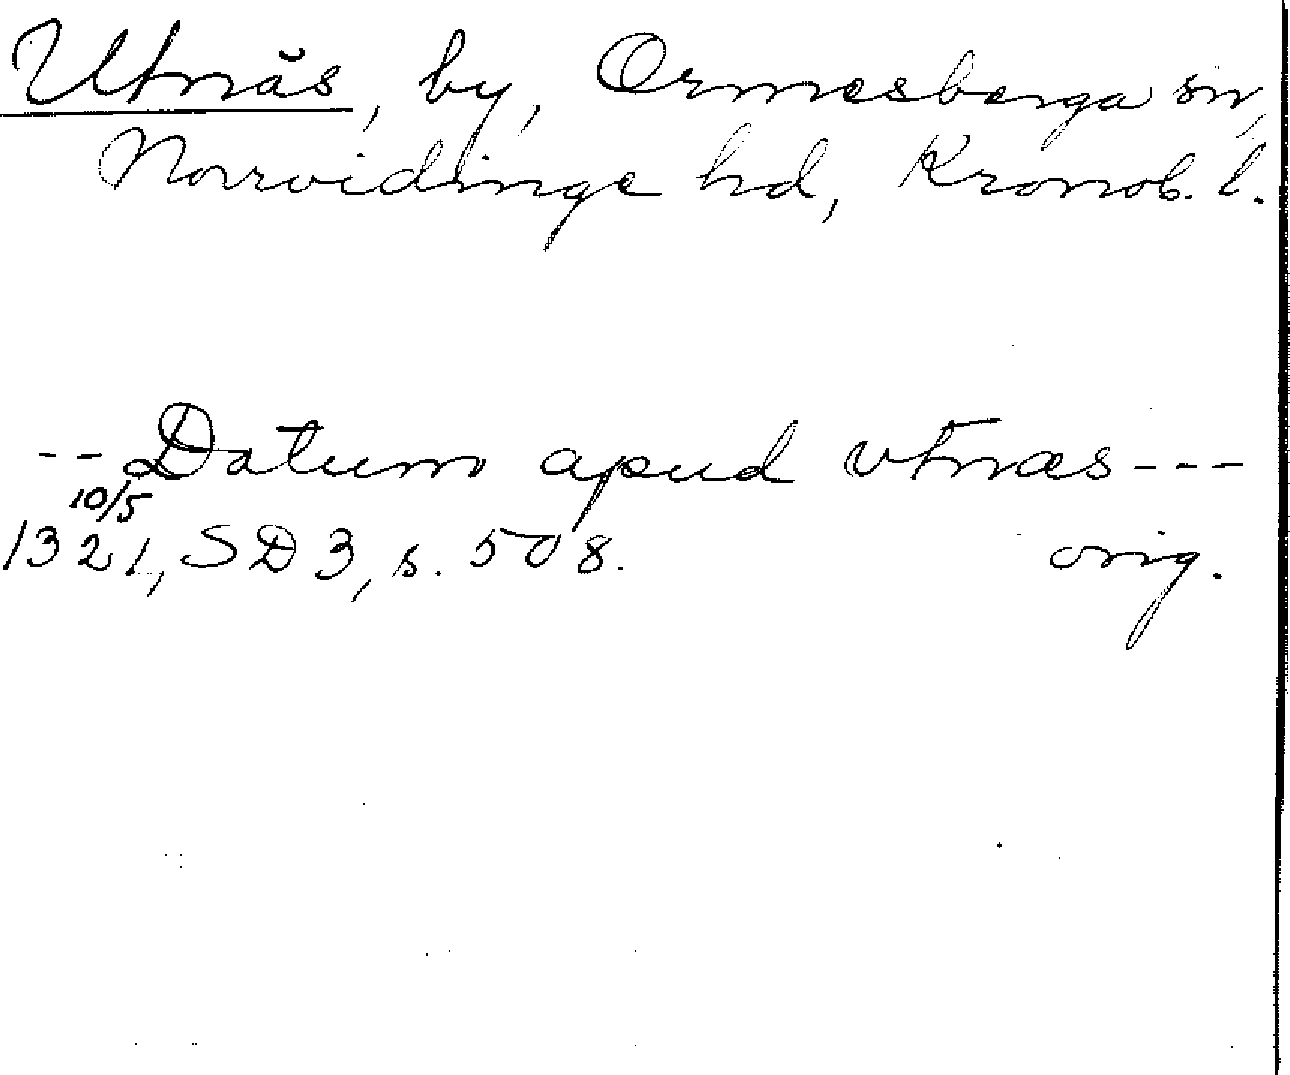 Utnäs, by, Ormesberga sn,
Norrvidinge hd, Kronob. l.
-- Datum apud vtnæs ---
10/5
1321, SD 3, s. 508. orig.